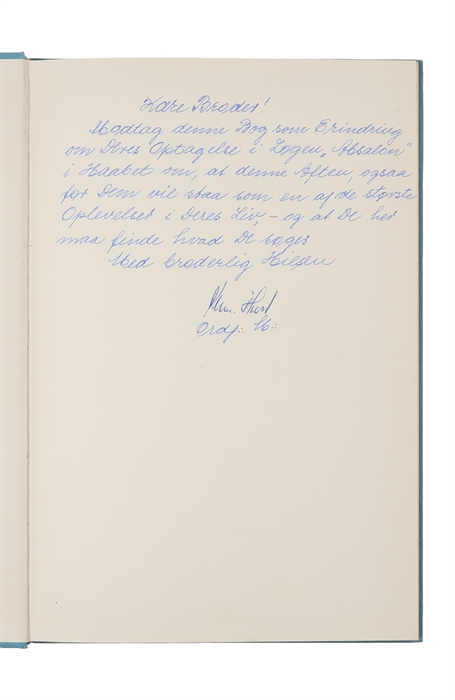 Kære Broder!
Modtag denne Bog som Erindring
om Deres Optagelse i Logen „Absalon"
i Haabet om, at denne Aften, ogsaa
for Dem vil staa som en af de største
Oplevelser i Deres Liv, – og at De her
maa finde hvad De søger
Med broderlig Hilsen
Ordf∴ M∴